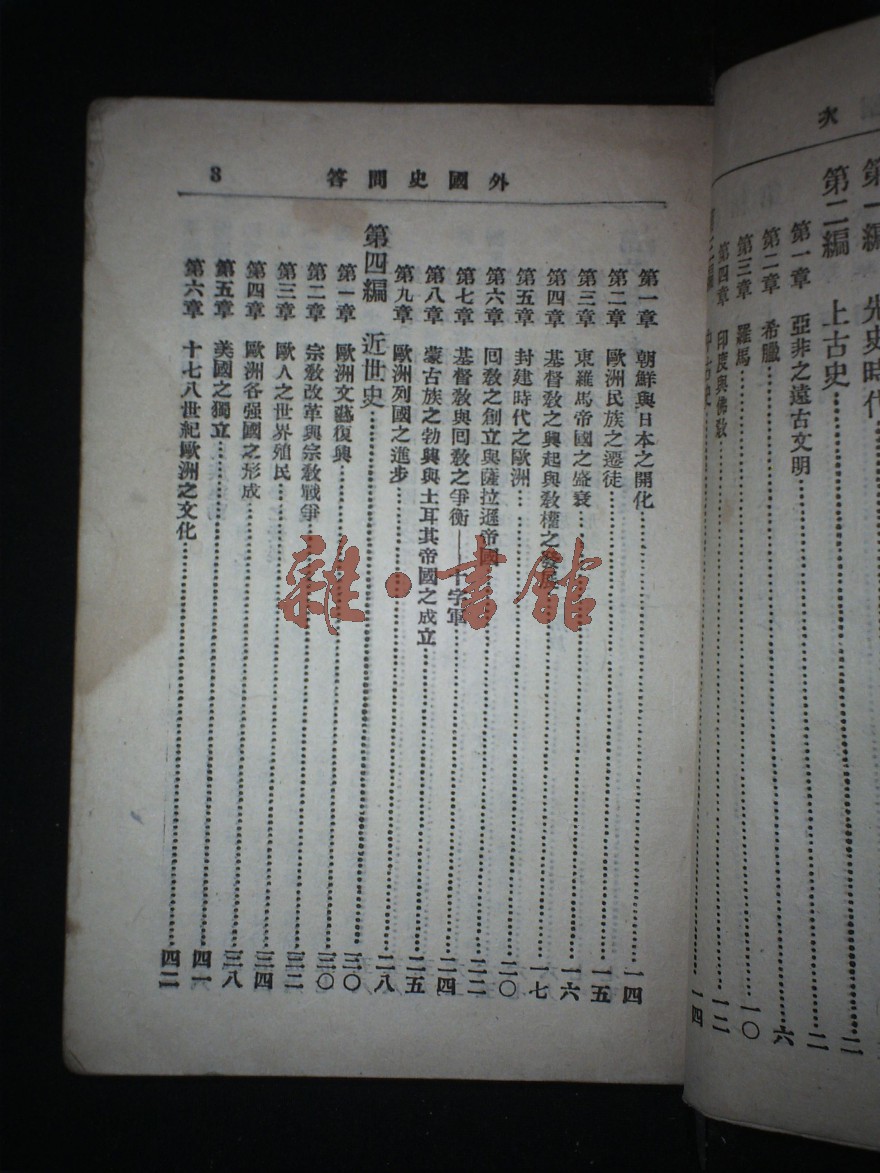 次
第一編 先史時代
第二編 上古史……二
第一章 亞非之遠古文明……二
第二章 希臘……六
第三章 羅馬……一〇
第四章 印度與佛教……一二
中古史……一四
外國史問答 8
第一章 朝鮮與日本之開化……一四
第二章 歐洲民族之遷徙……一五
第三章 東羅馬帝國之盛衰……一六
第四章 基督教之興起與教權之發展……一七
第五章 封建時代之歐洲……二〇
第六章 回教之創立與薩拉遜帝國……二二
第七章 基督教與回教之爭衡——十字軍……二四
第八章 蒙古族之勃興與土耳其帝國之成立……二五
第九章 歐洲列國之進步……二八
第四編 近世史……三〇
第一章 歐洲文藝復興……三〇
第二章 宗教改革與宗教戰爭……三二
第三章 歐人之世界殖民……三四
第四章 歐洲各强國之形成……三八
第五章 美國之獨立……四一
第六章 十七八世紀歐洲之文化……四二
雜·書館